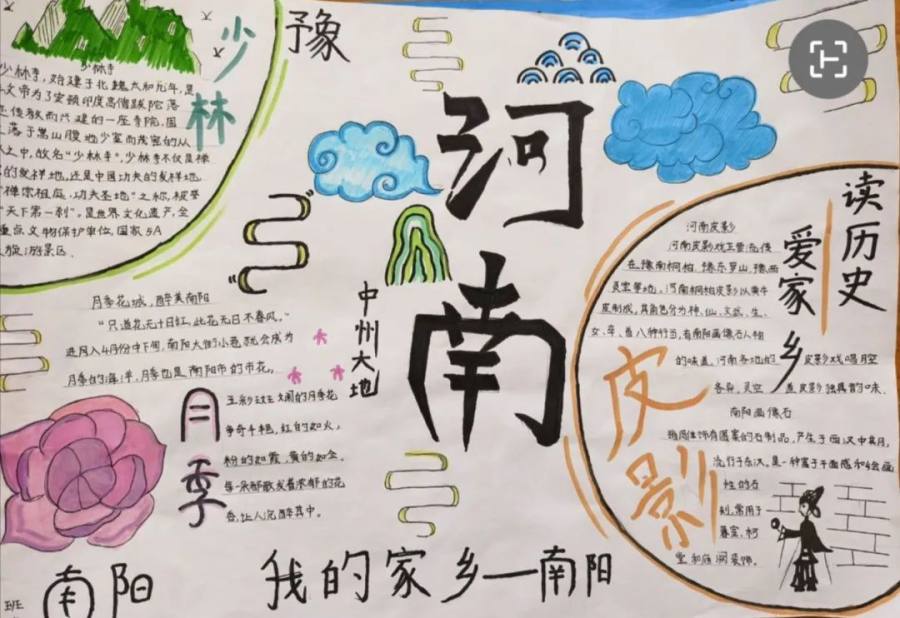 少林
少林寺
少林寺，始建于北魏太和九年，是
文帝为了安顿印度高僧跋陀落
迹传教而兴建的一座寺院，因
落于嵩山腹地少室而茂密的丛
林之中，故名“少林寺”。少林寺不仅是禅
的发祥地，还是中国功夫的发祥地，
“禅宗祖庭，功夫圣地”之称，被誉
“天下第一刹”。是世界文化遗产，全
重点文物保护单位，国家5A
旅游景区
豫
河南
中州大地
读历史
爱家乡
河南皮影
河南皮影戏主要流传
在豫南桐柏、豫东罗山、豫西
灵宝等地。河南桐柏皮影以黄牛
皮制成，其角色分为神、仙、文武、生、
女、卒、兽八种行当，有南阳画像石人物
的味道，河南各地的皮影戏唱腔
各异，灵宝道皮影独具的味，
皮影
南阳画像石
雕刻
饰有图案的石制品，产生于西汉中某月，
流行于东汉。是一种富于平面感和绘画
性的石
刻，常用于
墓室、祠
堂和庙阙装饰。
月季花城，醉美南阳
“只道花无十日红，此花无日不春风。”
进月入4月份中下旬，南阳大街小巷就会成为
月季的海洋，月季也是南阳市的市花。
月季
五彩斑斓的月季花
争奇斗艳，红的如火，
粉的如霞，黄的如金。
每一朵都散发着浓郁的花
香，让人沉醉其中。
南阳
我的家乡—南阳